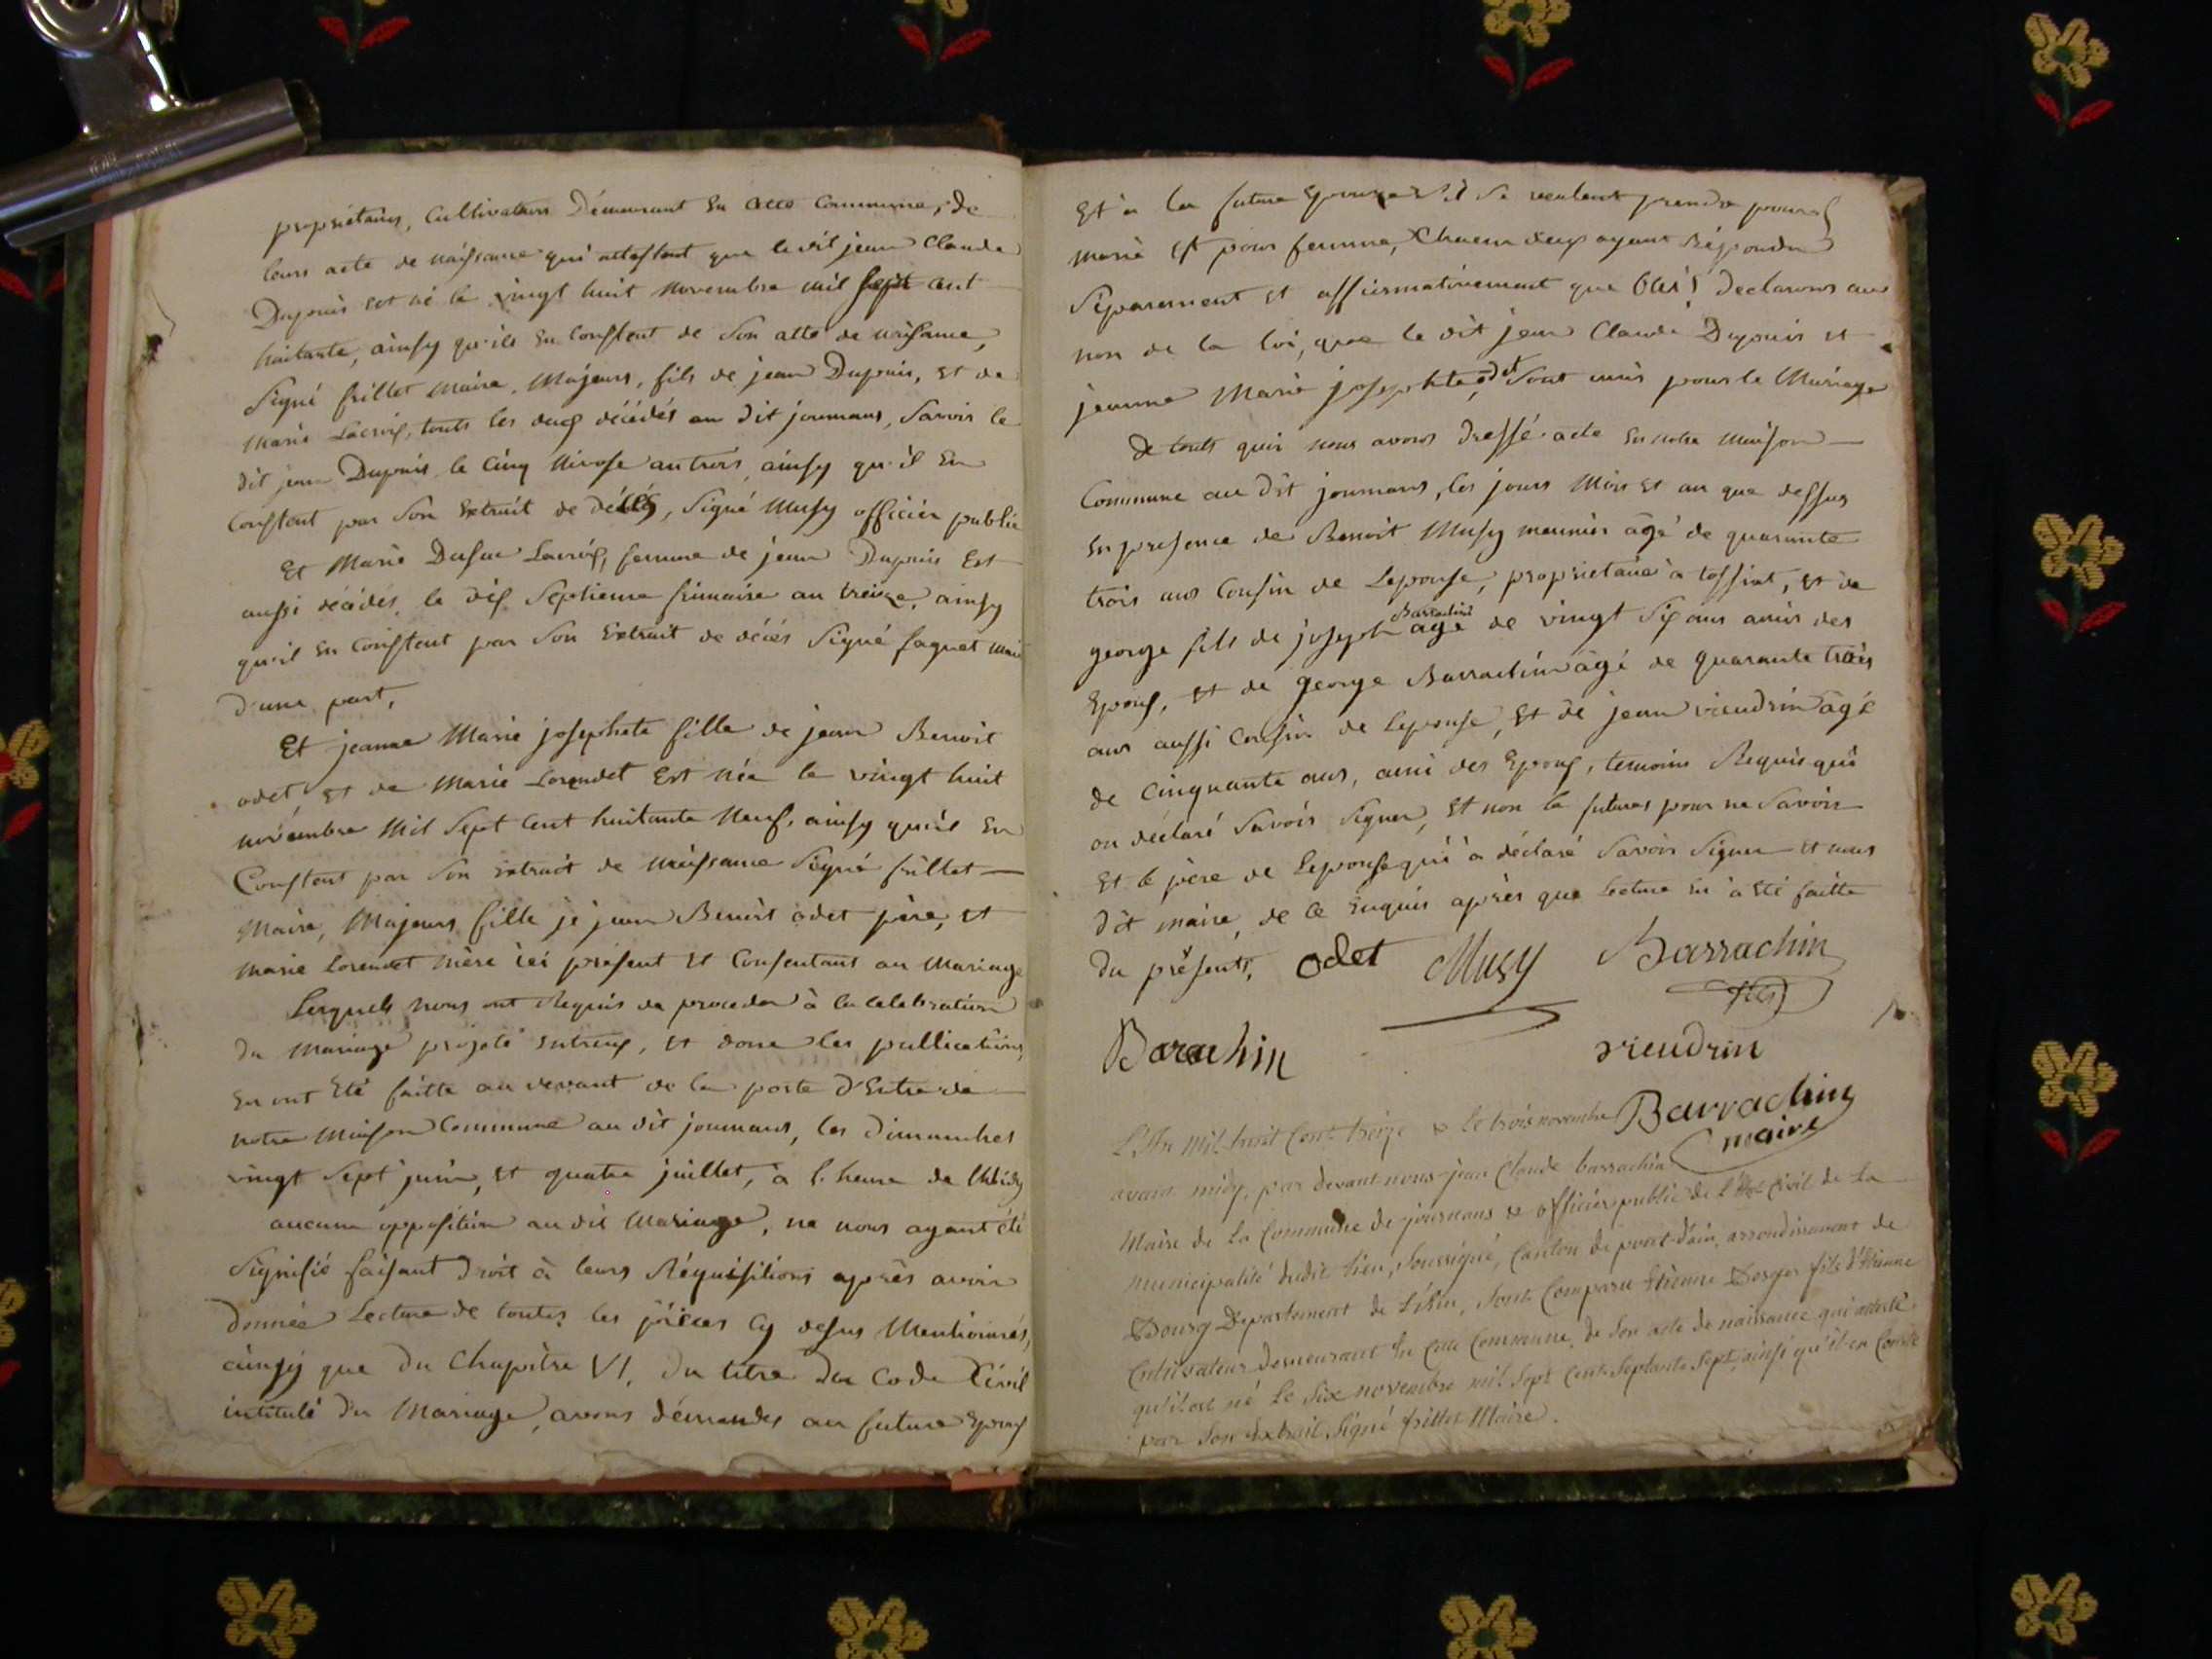 propriétaires, Cultivateurs Démeurant En cette Commune, de
leurs acte de naissance qui attestent que le dit jean Claude
Dupuis est né le vingt huit novembre mil sept cent
huitante, ainsy qu'ils En Constent de Son atte de naissance,
Signé frillet Maire, Majeurs, fils de jean Dupuis, et de
Marie Lacroix, touts les deux décédés au dit journans, Savoir le
dit jean Dupuis le Cinq Nivose an trois, ainsy qu'il En
Constent par Son Extrait de décés, Signé Musy officier public
Et Marie Lacroix, femme de jean Dupuis Est
aussi décédés le dix Septieme frimaire an treize, ainsy
qu'il En Constent par Son Extrait de décés Signé faguet
d'une part,
Et jeanne Marie josephete fille de jean Benoit
odet, et de Marie Lorendet Est née le vingt huit
novembre Mil Sept Cent huitante Neuf, ainsy qu'il En
Constent par Son Extrait de naissance Signé frillet
Maire, Majeurs fille je jean Benoit odet père, et
Marie Lorendet mère ici présent et Consentant au Mariage
Lesquels nous ont Requis de proceder à la Celebration
du Mariage projeté Entreux, et donc les publications
En ont Eté faitte au devant de la porte d'Entre de
notre Maison Commune au dit journans, les dimanches
vingt Sept juin, et quatre juillet, à l'heure de Midy
aucune opposition au dit Mariage, ne nous ayant été
Signifié faisant droit à leurs Réquisitions après avoir
donnée Lecture de toutes les pièces Cy desus Mentionnés,
ainsy que du Chapitre VI, du titre du Code Civil
intitulé du Mariage, avons démandés au future Epoux
Et à la future Epouse S'il Se veulent prendre pour
marié et pour femme, Chacun deux ayant Répondu
Séparement et affirmativement que Oui, declarons au
nom de la loi, que le dit jean Claude Dupuis et
jeanne Marie josephte odet Sont unis pour le Mariage
De touts quoi nous avons dressé acte En notre Maison
Commune au dit journans, les jours Mois et an que dessus
En presence de Benoit Musy meunier âgé de quarante
trois ans Cousin de Lepouse, proprietaire à tossiat, et de
george fils de joseph Barrachin âgé de vingt Six ans amis des
Epoux, et de george Barrachin âgé de quarante trois
ans aussi Cousin de Lepouse, Et de jean vieudrin âgé
de Cinquante ans, ami des Epoux, temoins Requis qui
on déclaré Savoir Signer, Et non la futures pour ne Savoir
Et le père de Lepouse qui a déclaré Savoir Signer et nous
dit maire, de ce Enquis après que Lecture En a Eté faitte
du présents, odet Musy Barrachin
fils
Barachin vieudrin
L'An mil huit Cent treize & le trois novembre Barrachin
maire
avant midy, par devant nous jean Claude barrachin
Maire de la Commune de journans & officier public de l'Etat Civil de la
municipalité dudit lieu, Soussigné, Canton de pont-d'ain, arrondissement de
Bourg Departement de L'Ain, Sont Comparu Etienne fils d'Etienne
Cultivateur demeurant En Cette Commune, de Son acte de naissance qui atteste
qu'il est né Le Six novembre mil Sept Cent Septante Sept, ainsi qu'il en Conste
par Son Extrait Signé frillet Maire.